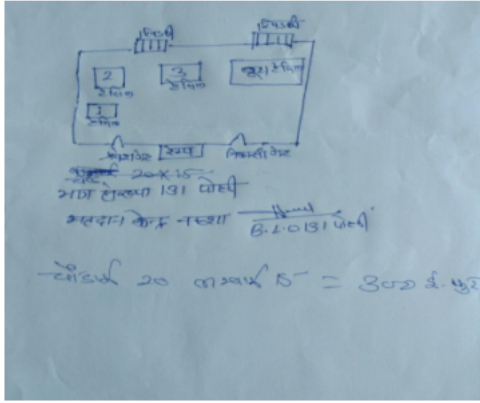 खिडकी खिडकी
2 3 बूथ टेबिल
टेबिल टेबिल
1
टेबिल
प्रवेश गेट रैम्प निकासी गेट
20 x 15
भाग संख्या 131 पोहरी
मतदान केन्द्र नक्शा
B.L.O 131 पोहरी
चौडाई 20 लम्बाई 15 = 300 ई. फुट